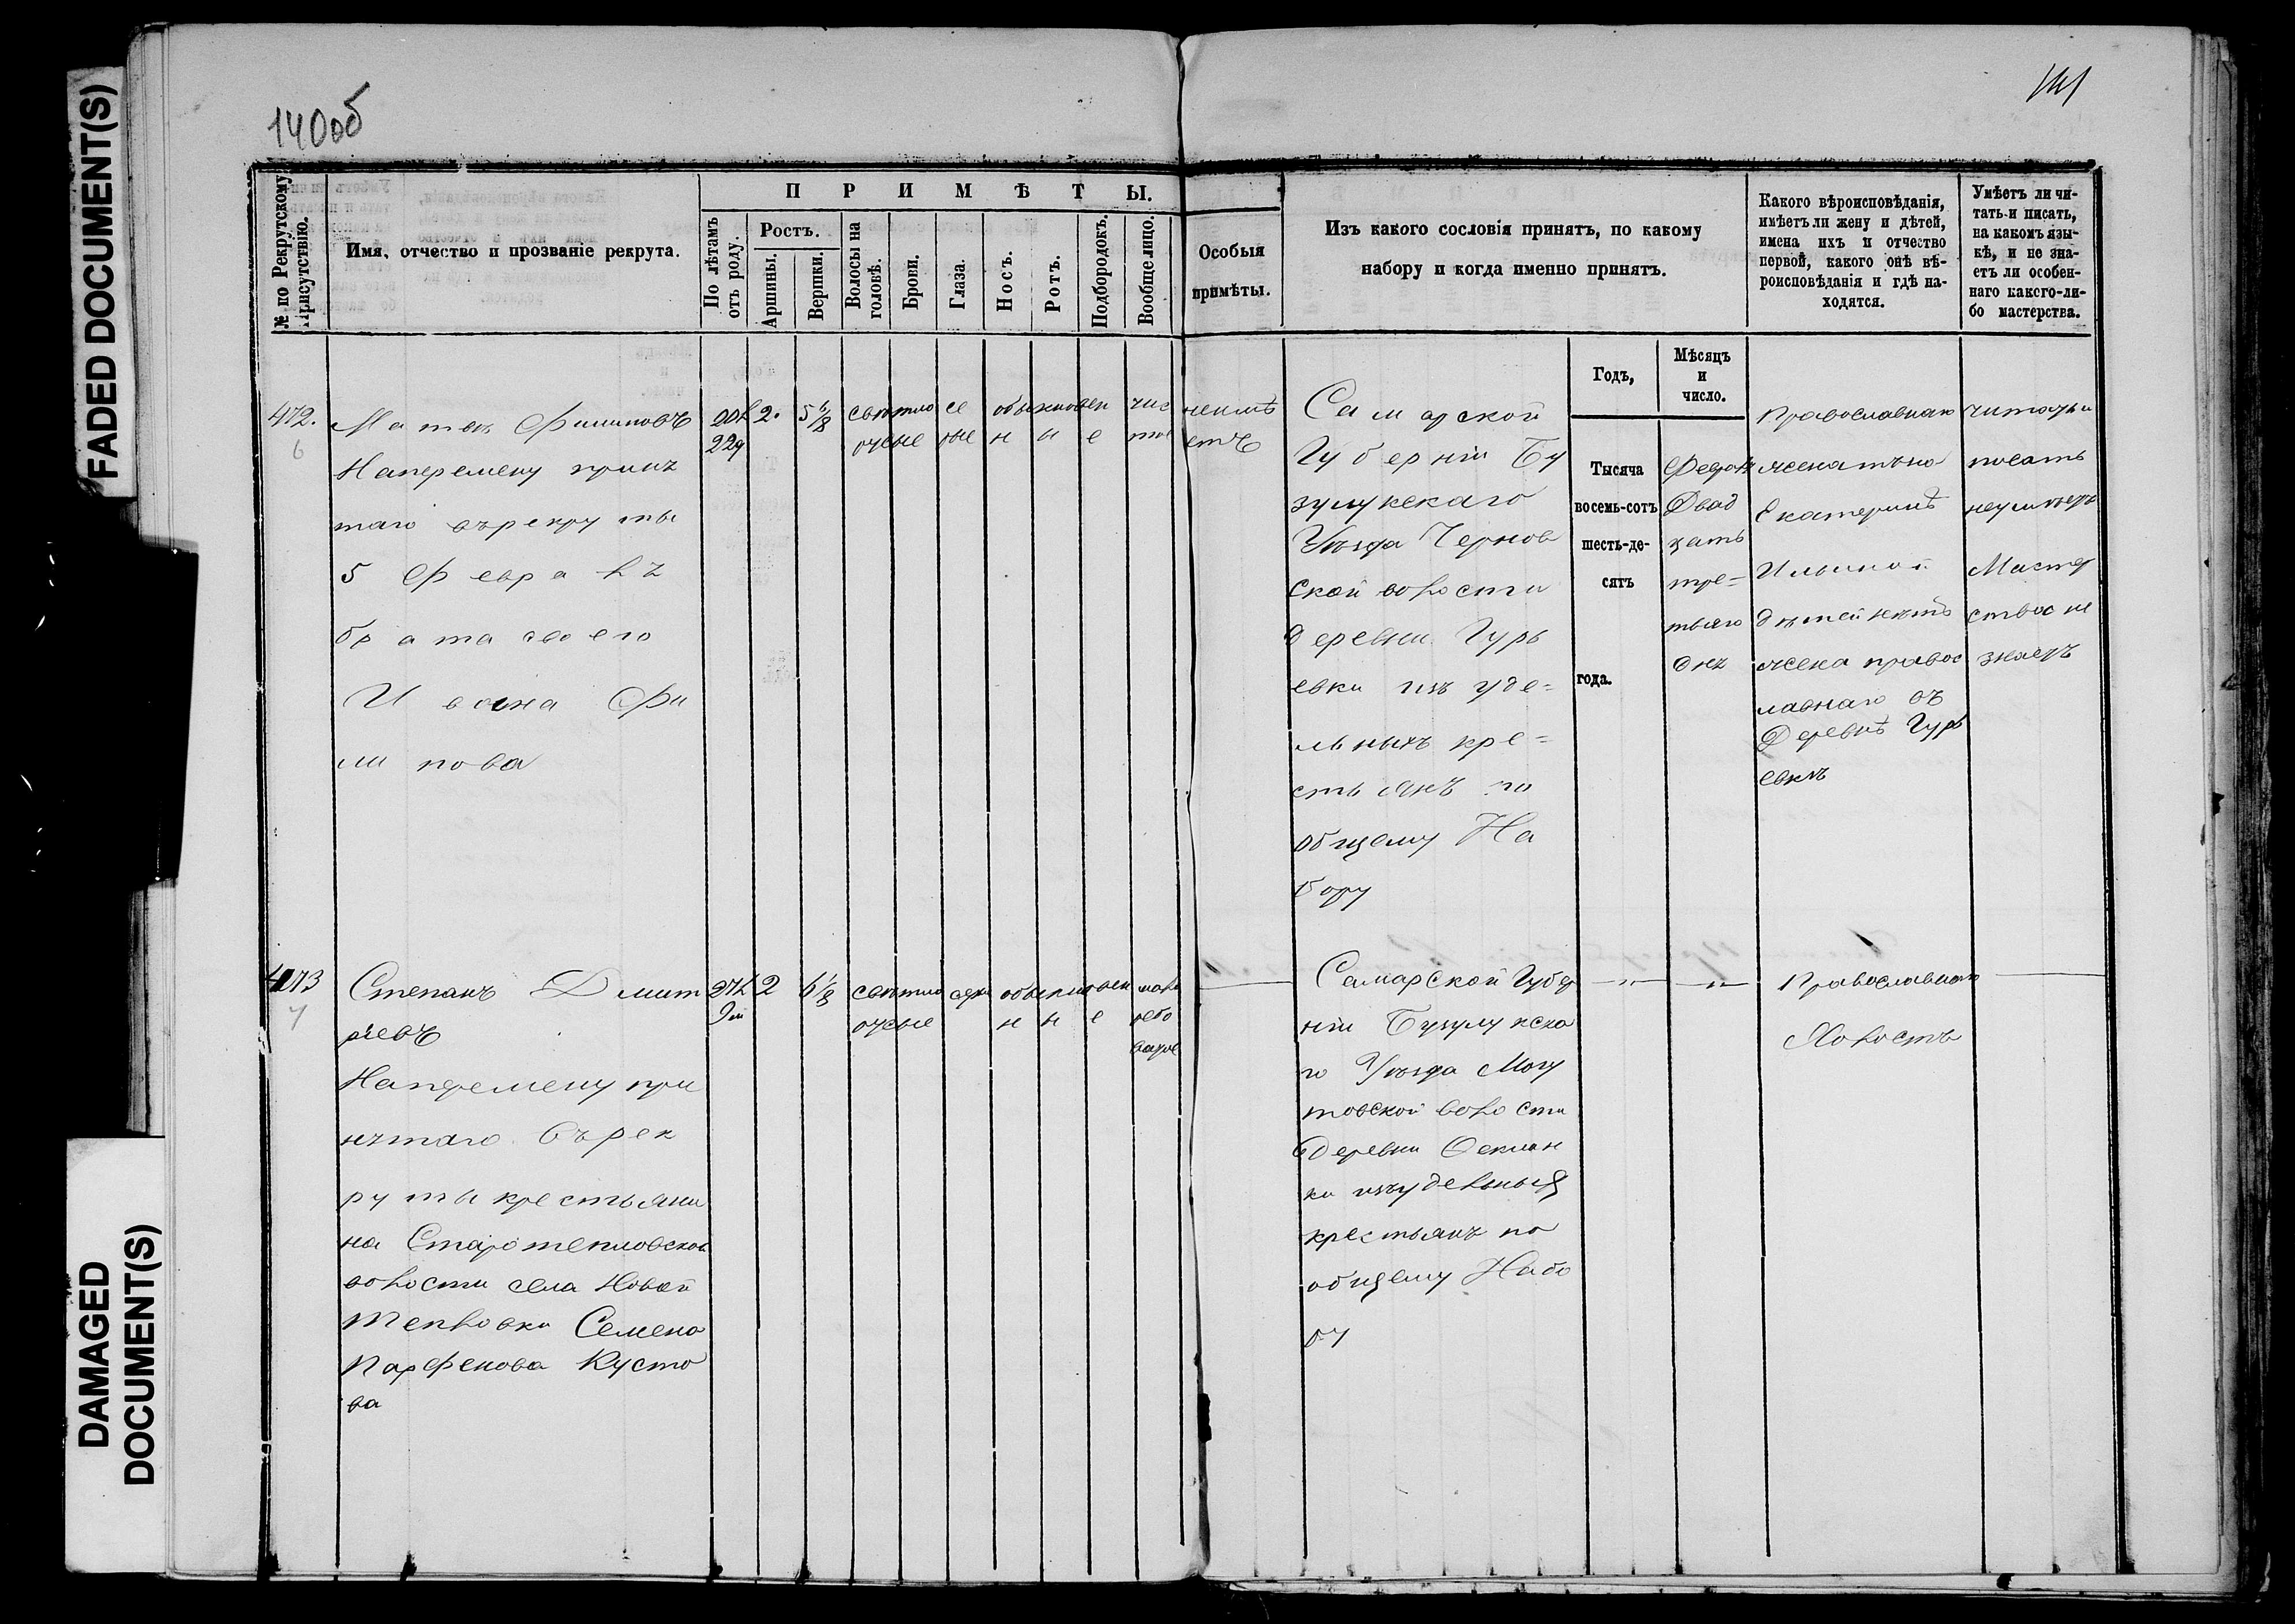 FADED DOCUMENT(S)
DAMAGED
DOCUMENT(S)
140об
141
№ по Рекрутскому Присутствію.
Имя, отчество и прозваніе рекрута.
ПРИМѢТЫ.
По лѣтамъ отъ роду.
Ростъ.
Аршины.
Вершки.
Волосы на головѣ.
Брови.
Глаза.
Носъ.
Ротъ.
Подбородокъ.
Вообще лицо.
Особыя
примѣты.
Изъ какого сословія принятъ, по какому
набору и когда именно принятъ.
Какого вѣроисповѣданія,
имѣетъ ли жену и дѣтей,
имена ихъ и отчество
первой, какого онѣ вѣ-
роисповѣданія и гдѣ на-
ходятся.
Умѣетъ ли чи-
тать и писать,
на какомъ язы-
кѣ, и не зна-
етъ ли особен-
наго какого-ли-
бо мастерства.
Годъ,
Мѣсяцъ
и
число.
472.
6
Матвѣй Филиповъ
Наперемену приня
таго въ рекруты
5 Февраля
брата своего
Ивана Фи
липова
20л
22д
2.
5 1/8
свѣтло
русые
се
рые
обыкновен
н ы е
чис
тое
неимѣ
етъ
Самарской
Губерніи Бу
зулукскаго
Уѣзда Чернов
ской волости
деревни Гурь
евки изъ уде=
льныхъ кре=
стьянъ по
общему На
бору
Тысяча
восемь-сотъ
шесть-де-
сятъ
года.
Февраля
Двад
цать
тре=
тьяго
дня
Православнаго
жена
Екатерина
Ильиной
дѣтей нѣтъ
жена правос
лавнаго въ
Деревнѣ Гурь
евкѣ
читать и
писать
неумѣетъ
Мастер
ства не
знаетъ
473
7
Степанъ Дмит
ріевъ
Наперемену при
нятаго въ рек
руты крестьяни
на Старотепловской
волости села Новой
Тепловки Семена
Парфенова Кусто
ва
27л
9м
2
6 1/8
свѣтло
русые
серы
обыкновен
н ы е
мало
рябо
ватое
Самарской Губер
ніи Бузулукска
го Уѣзда Могу
товской волости
деревни
ки изъ удельныхъ
крестьянъ по
общему Набо
ру
— „ —
— „ —
Православнаго
Холостъ